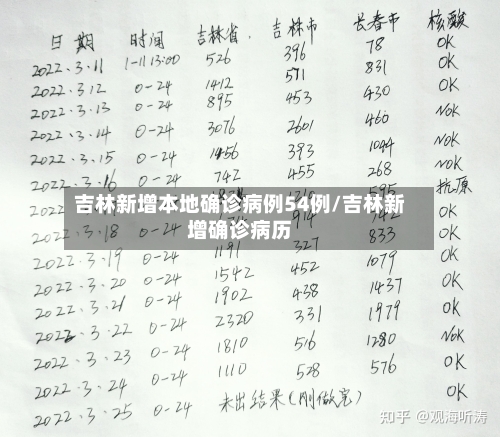 日期 时间 吉林省. 吉林市 长春市 核酸
2022.3.11 1-11 13:00 526 396 78 OK
2022.3.12 0-24 1412 831 OK
2022.3.13 0-24 895 453 430 OK
2022.3.14 0-24 3076 2601 460 NOK
2022.3.15 0-24 1456 393 1044 NOK
2022.3.16 0-24 742 455 268 NOK
595 抗原
吉林新增本地确诊病例54例/吉林新
增确诊病历
3.18 0-24 914 742 OK
2022.3.19 0-24 1191 327 833 OK
2022.3.20 0-24 1542 452 1079 OK
2022.3.21 0-24 1902 438 1437 OK
2022.3.22 0-24 2320 331 1979 OK
2022.3.23 0-24 1810 516 1280 NOK
2022.3.24 0-24 1110 528 576 OK
2022.3.25 0-24 未出结果(刚做完) OK
知乎 @观海听涛